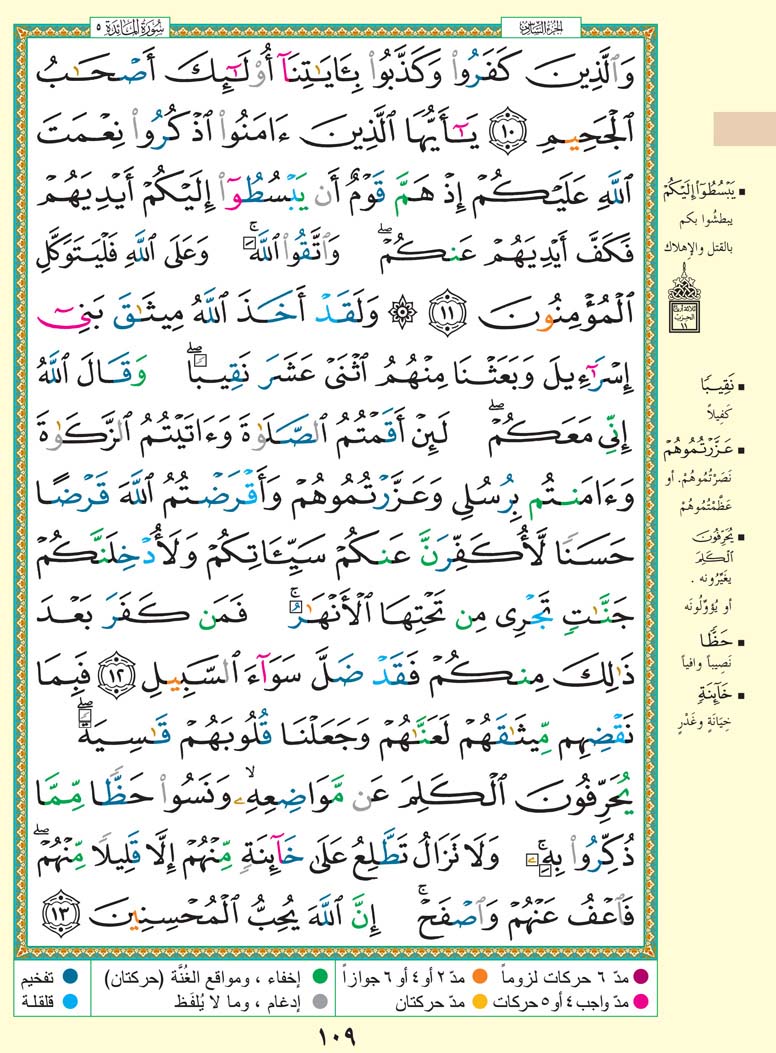 سُورَةُ المَائِدَة ٥
الجزء السادس
وَٱلَّذِينَ كَفَرُوا۟ وَكَذَّبُوا۟ بِـَٔايَـٰتِنَآ أُو۟لَـٰٓئِكَ أَصْحَـٰبُ
ٱلْجَحِيمِ ١٠ يَـٰٓأَيُّهَا ٱلَّذِينَ ءَامَنُوا۟ ٱذْكُرُوا۟ نِعْمَتَ
ٱللَّهِ عَلَيْكُمْ إِذْ هَمَّ قَوْمٌ أَن يَبْسُطُوٓا۟ إِلَيْكُمْ أَيْدِيَهُمْ
فَكَفَّ أَيْدِيَهُمْ عَنكُمْ ۖ وَٱتَّقُوا۟ ٱللَّهَ ۚ وَعَلَى ٱللَّهِ فَلْيَتَوَكَّلِ
ٱلْمُؤْمِنُونَ ١١ ۞ وَلَقَدْ أَخَذَ ٱللَّهُ مِيثَـٰقَ بَنِىٓ
إِسْرَٰٓءِيلَ وَبَعَثْنَا مِنْهُمُ ٱثْنَىْ عَشَرَ نَقِيبًا ۖ وَقَالَ ٱللَّهُ
إِنِّى مَعَكُمْ ۖ لَئِنْ أَقَمْتُمُ ٱلصَّلَوٰةَ وَءَاتَيْتُمُ ٱلزَّكَوٰةَ
وَءَامَنتُم بِرُسُلِى وَعَزَّرْتُمُوهُمْ وَأَقْرَضْتُمُ ٱللَّهَ قَرْضًا
حَسَنًا لَّأُكَفِّرَنَّ عَنكُمْ سَيِّـَٔاتِكُمْ وَلَأُدْخِلَنَّكُمْ
جَنَّـٰتٍ تَجْرِى مِن تَحْتِهَا ٱلْأَنْهَـٰرُ ۚ فَمَن كَفَرَ بَعْدَ
ذَٰلِكَ مِنكُمْ فَقَدْ ضَلَّ سَوَآءَ ٱلسَّبِيلِ ١٢ فَبِمَا
نَقْضِهِم مِّيثَـٰقَهُمْ لَعَنَّـٰهُمْ وَجَعَلْنَا قُلُوبَهُمْ قَـٰسِيَةً ۖ
يُحَرِّفُونَ ٱلْكَلِمَ عَن مَّوَاضِعِهِۦ ۙ وَنَسُوا۟ حَظًّا مِّمَّا
ذُكِّرُوا۟ بِهِۦ ۚ وَلَا تَزَالُ تَطَّلِعُ عَلَىٰ خَآئِنَةٍ مِّنْهُمْ إِلَّا قَلِيلًا مِّنْهُمْ ۖ
فَٱعْفُ عَنْهُمْ وَٱصْفَحْ ۚ إِنَّ ٱللَّهَ يُحِبُّ ٱلْمُحْسِنِينَ ١٣
▪ يَبْسُطُوٓا۟ إِلَيْكُمْ
يبطشُوا بكم
بالقتل والإهلاك
ثلاثة أرباع
الحزب
١١
▪ نَقِيبًا
كَفِيلاً
▪ عَزَّرْتُمُوهُمْ
نَصَرْتُمُوهُمْ. أو
عَظَّمْتُمُوهُمْ
▪ يُحَرِّفُونَ
ٱلْكَلِمَ
يغَيِّرُونه .
أو يُؤَوِّلُونَه
▪ حَظًّا
نَصِيباً وافياً
▪ خَآئِنَةٍ
خِيَانَةٍ وغَدْرٍ
مدّ ٦ حركات لزوماً
مدّ ٢ أو ٤ أو ٦ جوازاً
إخفاء ، ومواقع الغُنَّة (حركتان)
تفخيم
مدّ واجب ٤ أو ٥ حركات
مدّ حركتان
إدغام ، وما لا يُلفَظ
قلقلة
١٠٩